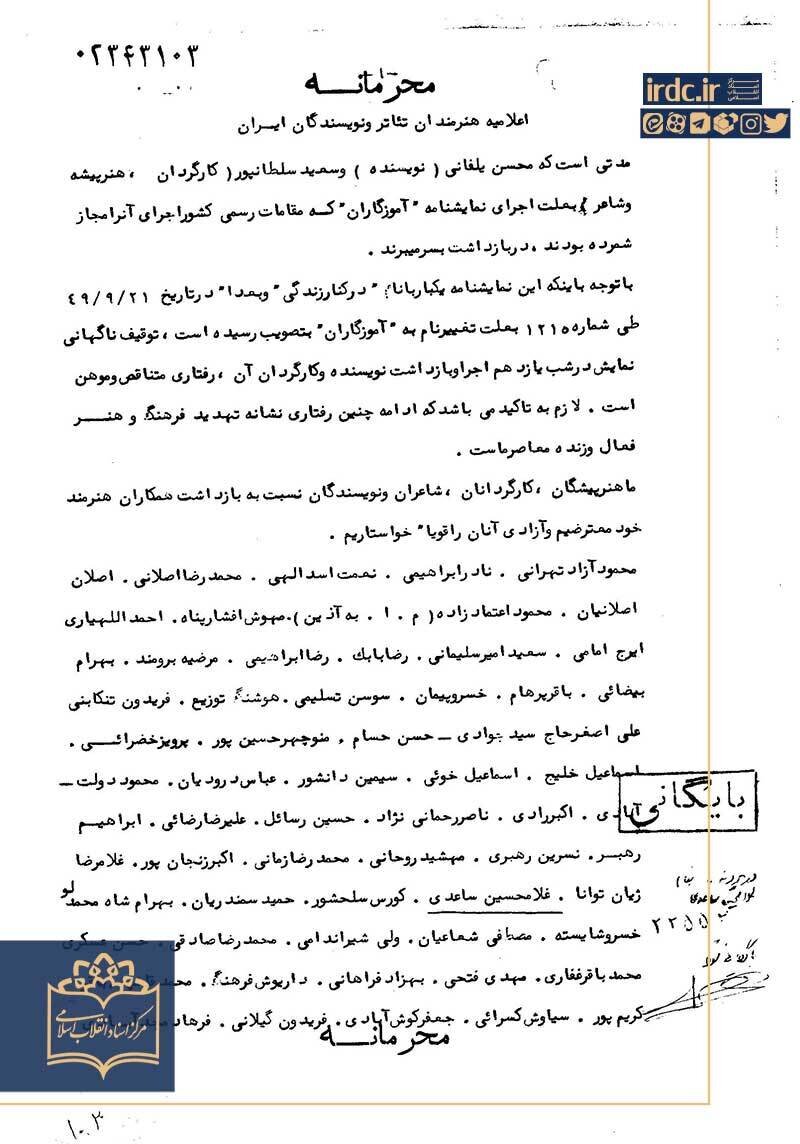 ۰۲۳۴۳۱۰۳
محرمانه
irdc.ir
مرکز اسناد انقلاب اسلامی
اعلامیه هنرمندان تئاتر ونویسندگان ایران
مدتی است که محسن یلفانی ( نویسنده ) وسعید سلطانپور( کارگردان ، هنرپیشه
وشاعر ) بعلت اجرای نمایشنامه "آموزگاران" که مقامات رسمی کشوراجرای آنرامجاز
شمرده بودند ، دربازداشت بسرمیبرند .
باتوجه باینکه این نمایشنامه یکباربانام " درکنارزندگی" وبعدا" درتاریخ ۴۹/۹/۲۱
طی شماره ۱۲۱۵ بعلت تغییرنام به "آموزگاران" بتصویب رسیده است ، توقیف ناگهانی
نمایش درشب یازدهم اجراوبازداشت نویسنده وکارگردان آن ، رفتاری متناقص وموهن
است . لازم به تاکیدمی باشدکه ادامه چنین رفتاری نشانه تهدید فرهنگ و هنر
فعال وزنده معاصرماست .
ماهنرپیشگان ،کارگردانان ،شاعران ونویسندگان نسبت به بازداشت همکاران هنرمند
خود معترضیم وآزادی آنان راقویا" خواستاریم .
محمودآزادتهرانی . نادرابراهیمی . نعمت اسدالهی . محمدرضااصلانی . اصلان
اصلانیان . محمود اعتمادزاده( م . ا . به آذین ).مهوش افشارپناه. احمداللهیاری
ایرج امامی . سعیدامیرسلیمانی . رضابابک . رضاابراهیمی . مرضیه برومند . بهرام
بیضائی . باقرپرهام . خسروپیمان . سوسن تسلیمی.هوشنگ توزیع . فریدون تنکابنی
علی اصغرحاج سیدجوادی – حسن حسام . منوچهرحسین پور . پرویزخضرائی .
اسماعیل خلیج . اسماعیل خوئی . سیمین دانشور . عباس درودیان . محمود دولت –
آبادی . اکبررادی . ناصررحمانی نژاد . حسین رسائل . علیرضارضائی . ابراهیم
رهبر . نسرین رهبری . مهشیدروحانی . محمدرضازمانی . اکبرزنجان پور . غلامرضا
ژیان توانا . غلامحسین ساعدی . کورس سلحشور . حمیدسمندریان . بهرام شاه محمدلو
خسروشایسته . مصطفی شعاعیان . ولی شیراندامی . محمدرضاصادقی . حسن عسکری
محمدباقرغفاری . مهدی فتحی . بهزاد فراهانی . داریوش فرهنگ . محمد
کریم پور . سیاوش کسرائی . جعفرکوش آبادی . فریدون گیلانی . فرهاد
بایگانی
محرمانه
مرکز اسناد انقلاب اسلامی
۱۰۳